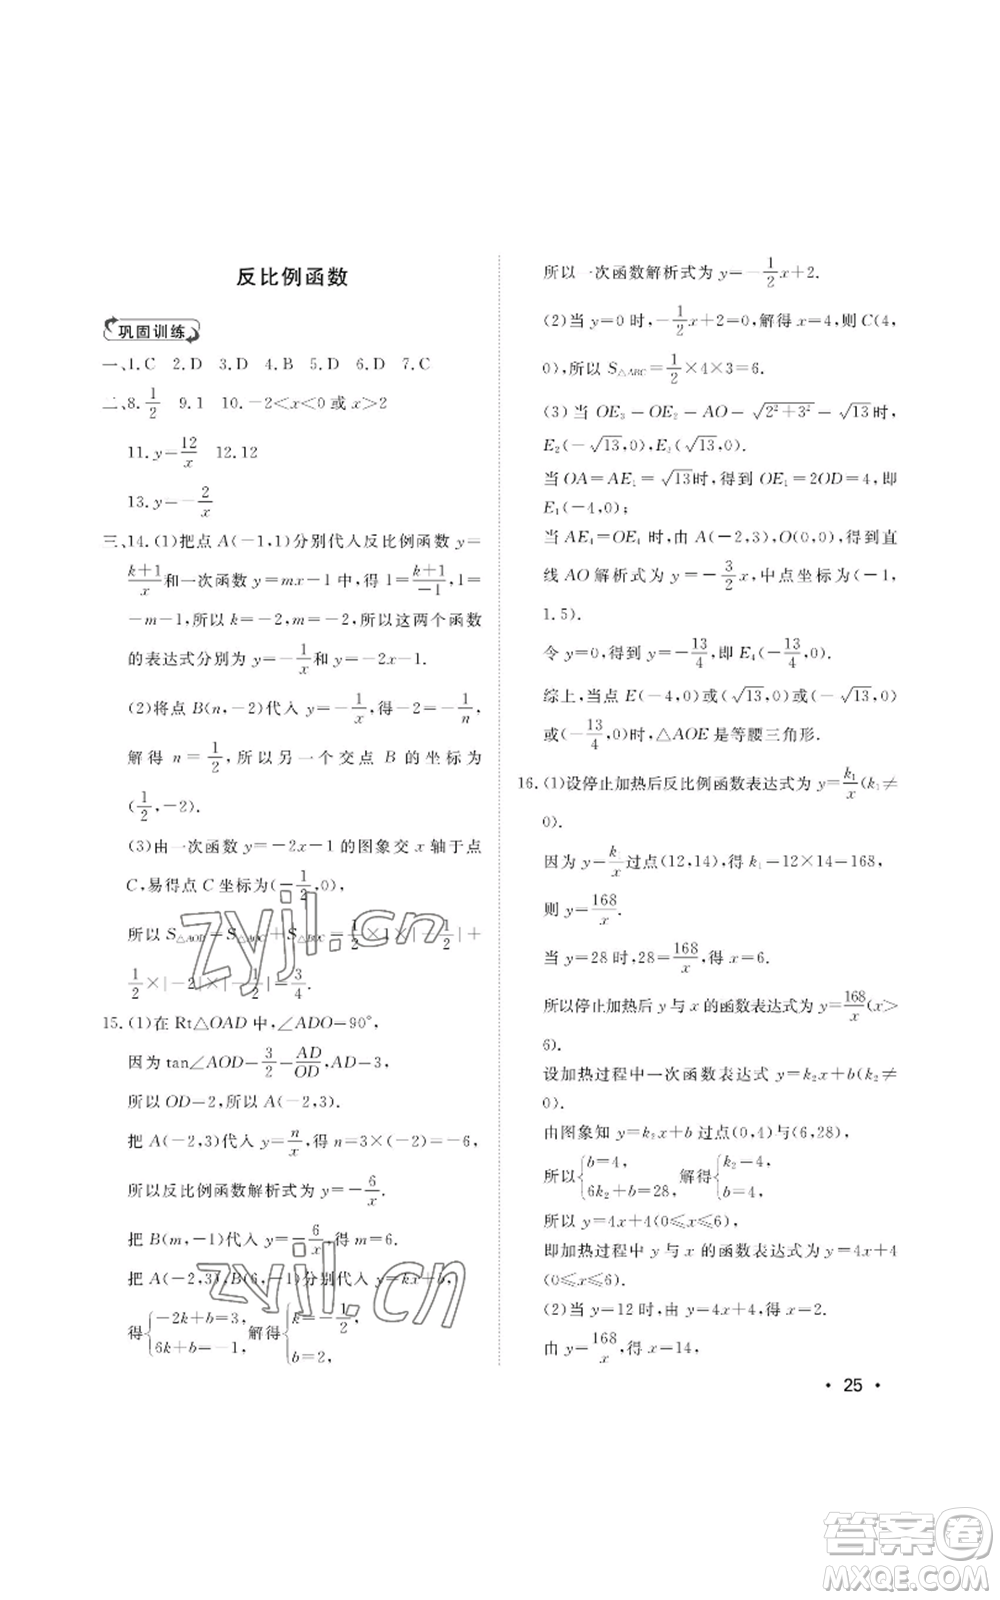 反比例函数
巩固训练
一、1.C 2.D 3.D 4.B 5.D 6.D 7.C
二、8.1/2 9.1 10.－2<x<0或x>2
11.y＝12/x 12.12
13.y＝－2/x
三、14.(1)把点A(－1,1)分别代入反比例函数y＝
(k+1)/x和一次函数y＝mx－1中,得1＝(k+1)/－1,1
＝－m－1,所以k＝－2,m＝－2,所以这两个函数
的表达式分别为y＝－1/x和y＝－2x－1.
(2)将点B(n,－2)代入y＝－1/x,得－2＝－1/n,
解得n＝1/2,所以另一个交点B的坐标为
(1/2,－2).
(3)由一次函数y＝－2x－1的图象交x轴于点
C,易得点C坐标为(－1/2,0),
所以S△AOD＝S△AOC＋S△BOC＝1/2×1×|－1/2|＋
1/2×|－2|×|－1/2|＝3/4.
15.(1)在Rt△OAD中,∠ADO＝90°,
因为tan∠AOD＝3/2＝AD/OD,AD＝3,
所以OD＝2,所以A(－2,3).
把A(－2,3)代入y＝n/x,得n＝3×(－2)＝－6,
所以反比例函数解析式为y＝－6/x.
把B(m,－1)代入y＝－6/x,得m＝6.
把A(－2,3),B(6,－1)分别代入y＝kx＋b,
得{－2k＋b＝3, 6k＋b＝－1, 解得{k＝－1/2, b＝2,
所以一次函数解析式为y＝－1/2x＋2.
(2)当y＝0时,－1/2x＋2＝0,解得x＝4,则C(4,
0),所以S△ABC＝1/2×4×3＝6.
(3)当OE3＝OE2＝AO＝√(2²＋3²)＝√13时,
E2(－√13,0),E3(√13,0).
当OA＝AE1＝√13时,得到OE1＝2OD＝4,即
E1(－4,0);
当AE4＝OE4时,由A(－2,3),O(0,0)得到直
线AO解析式为y＝－3/2x,中点坐标为(－1,
1.5).
令y＝0,得到y＝－13/4,即E4(－13/4,0).
综上,当点E(－4,0)或(√13,0)或(－√13,0)
或(－13/4,0)时,△AOE是等腰三角形.
16.(1)设停止加热后反比例函数表达式为y＝k1/x(k1≠
0).
因为y＝k1/x过点(12,14),得k1＝12×14＝168,
则y＝168/x.
当y＝28时,28＝168/x,得x＝6.
所以停止加热后y与x的函数表达式为y＝168/x(x>
6).
设加热过程中一次函数表达式y＝k2x＋b(k2≠
0).
由图象知y＝k2x＋b过点(0,4)与(6,28),
所以{b＝4, 6k2＋b＝28, 解得{k2＝4, b＝4,
所以y＝4x＋4(0≤x≤6),
即加热过程中y与x的函数表达式为y＝4x＋4
(0≤x≤6).
(2)当y＝12时,由y＝4x＋4,得x＝2.
由y＝168/x,得x＝14,
• 25 •
zyjl.cn
zyjl.cn
答案卷
MXQE.COM